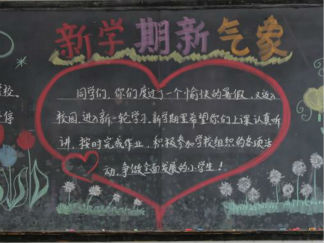 新学期新气象
同学们，你们度过了一个愉快的暑假，又迈入
校园，进入新一轮学习。新学期里希望你们上课认真听
讲，按时完成作业，积极参加学校组织的各项活
动，争做全面发展的小学生！